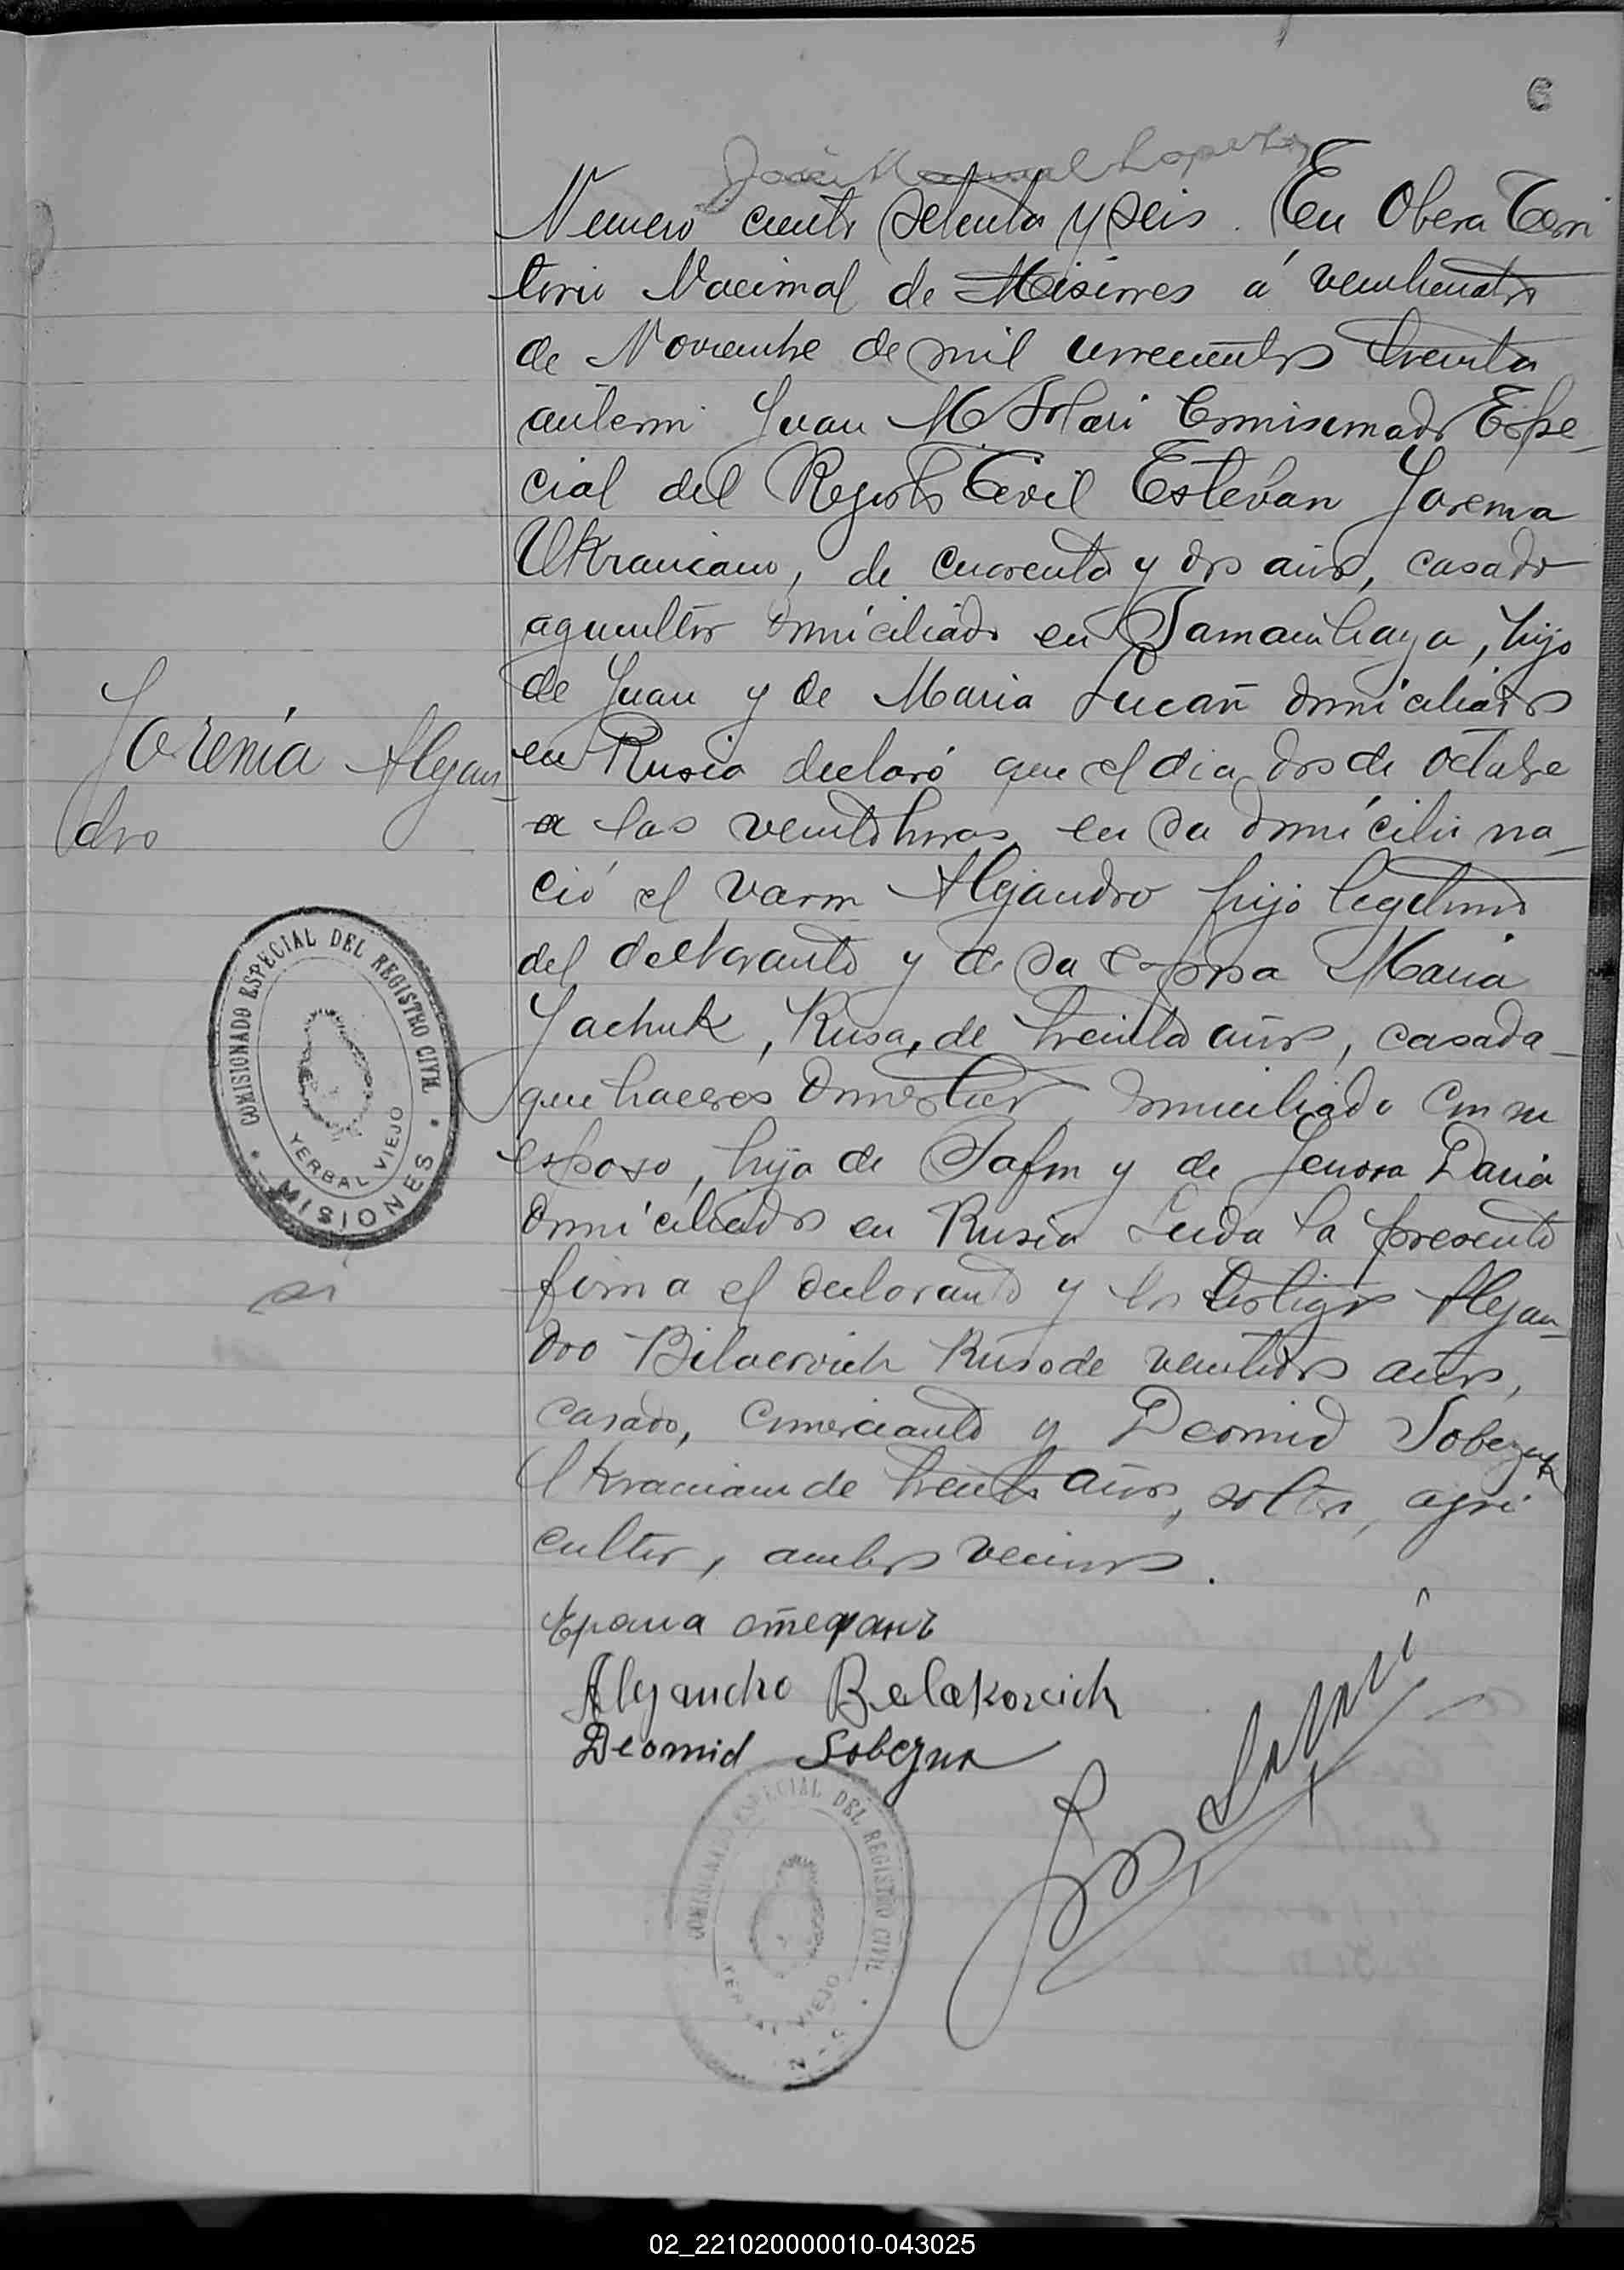 6
José Manuel Lopez
Numero ciento setenta y seis. En Obera Terri
torio Nacional de Misiones á veinticuatro
de Noviembre de mil novecientos treinta
antemi Juan M Solari Comisionado Espe-
cial del Registro Civil Esteban Jorema
Ukraniano, de cuarenta y dos años, casado
agricultor domiciliado en Samambaya, hijo
de Juan y de Maria Lucañ domiciliados
en Rusia declaró que el dia dos de octubre
a las veinte horas en su domicilio na-
ció el varon Alejandro hijo legitimo
del declarante y de su esposa Maria
Jachuk, Rusa, de treinta años, casada-
quehaceres domesticos domiciliada con su
esposo, hija de Safon y de Jenora Daria
domiciliados en Rusia Leida la presente
firma el declarante y los testigos Alejan-
dro Bilacovich Ruso de veintidos años,
casado, comerciante y Deomid Sobezuk
Ukraniano de treinta años, soltero, agri
cultor, ambos vecinos.
Jorema Alejan-
dro
COMISIONADO ESPECIAL DEL REGISTRO CIVIL
YERBAL VIEJO
MISIONES
Alejandro Belakovich
Deomid Sobezuk
COMISIONADO ESPECIAL DEL REGISTRO CIVIL
YERBAL VIEJO
02_221020000010-043025